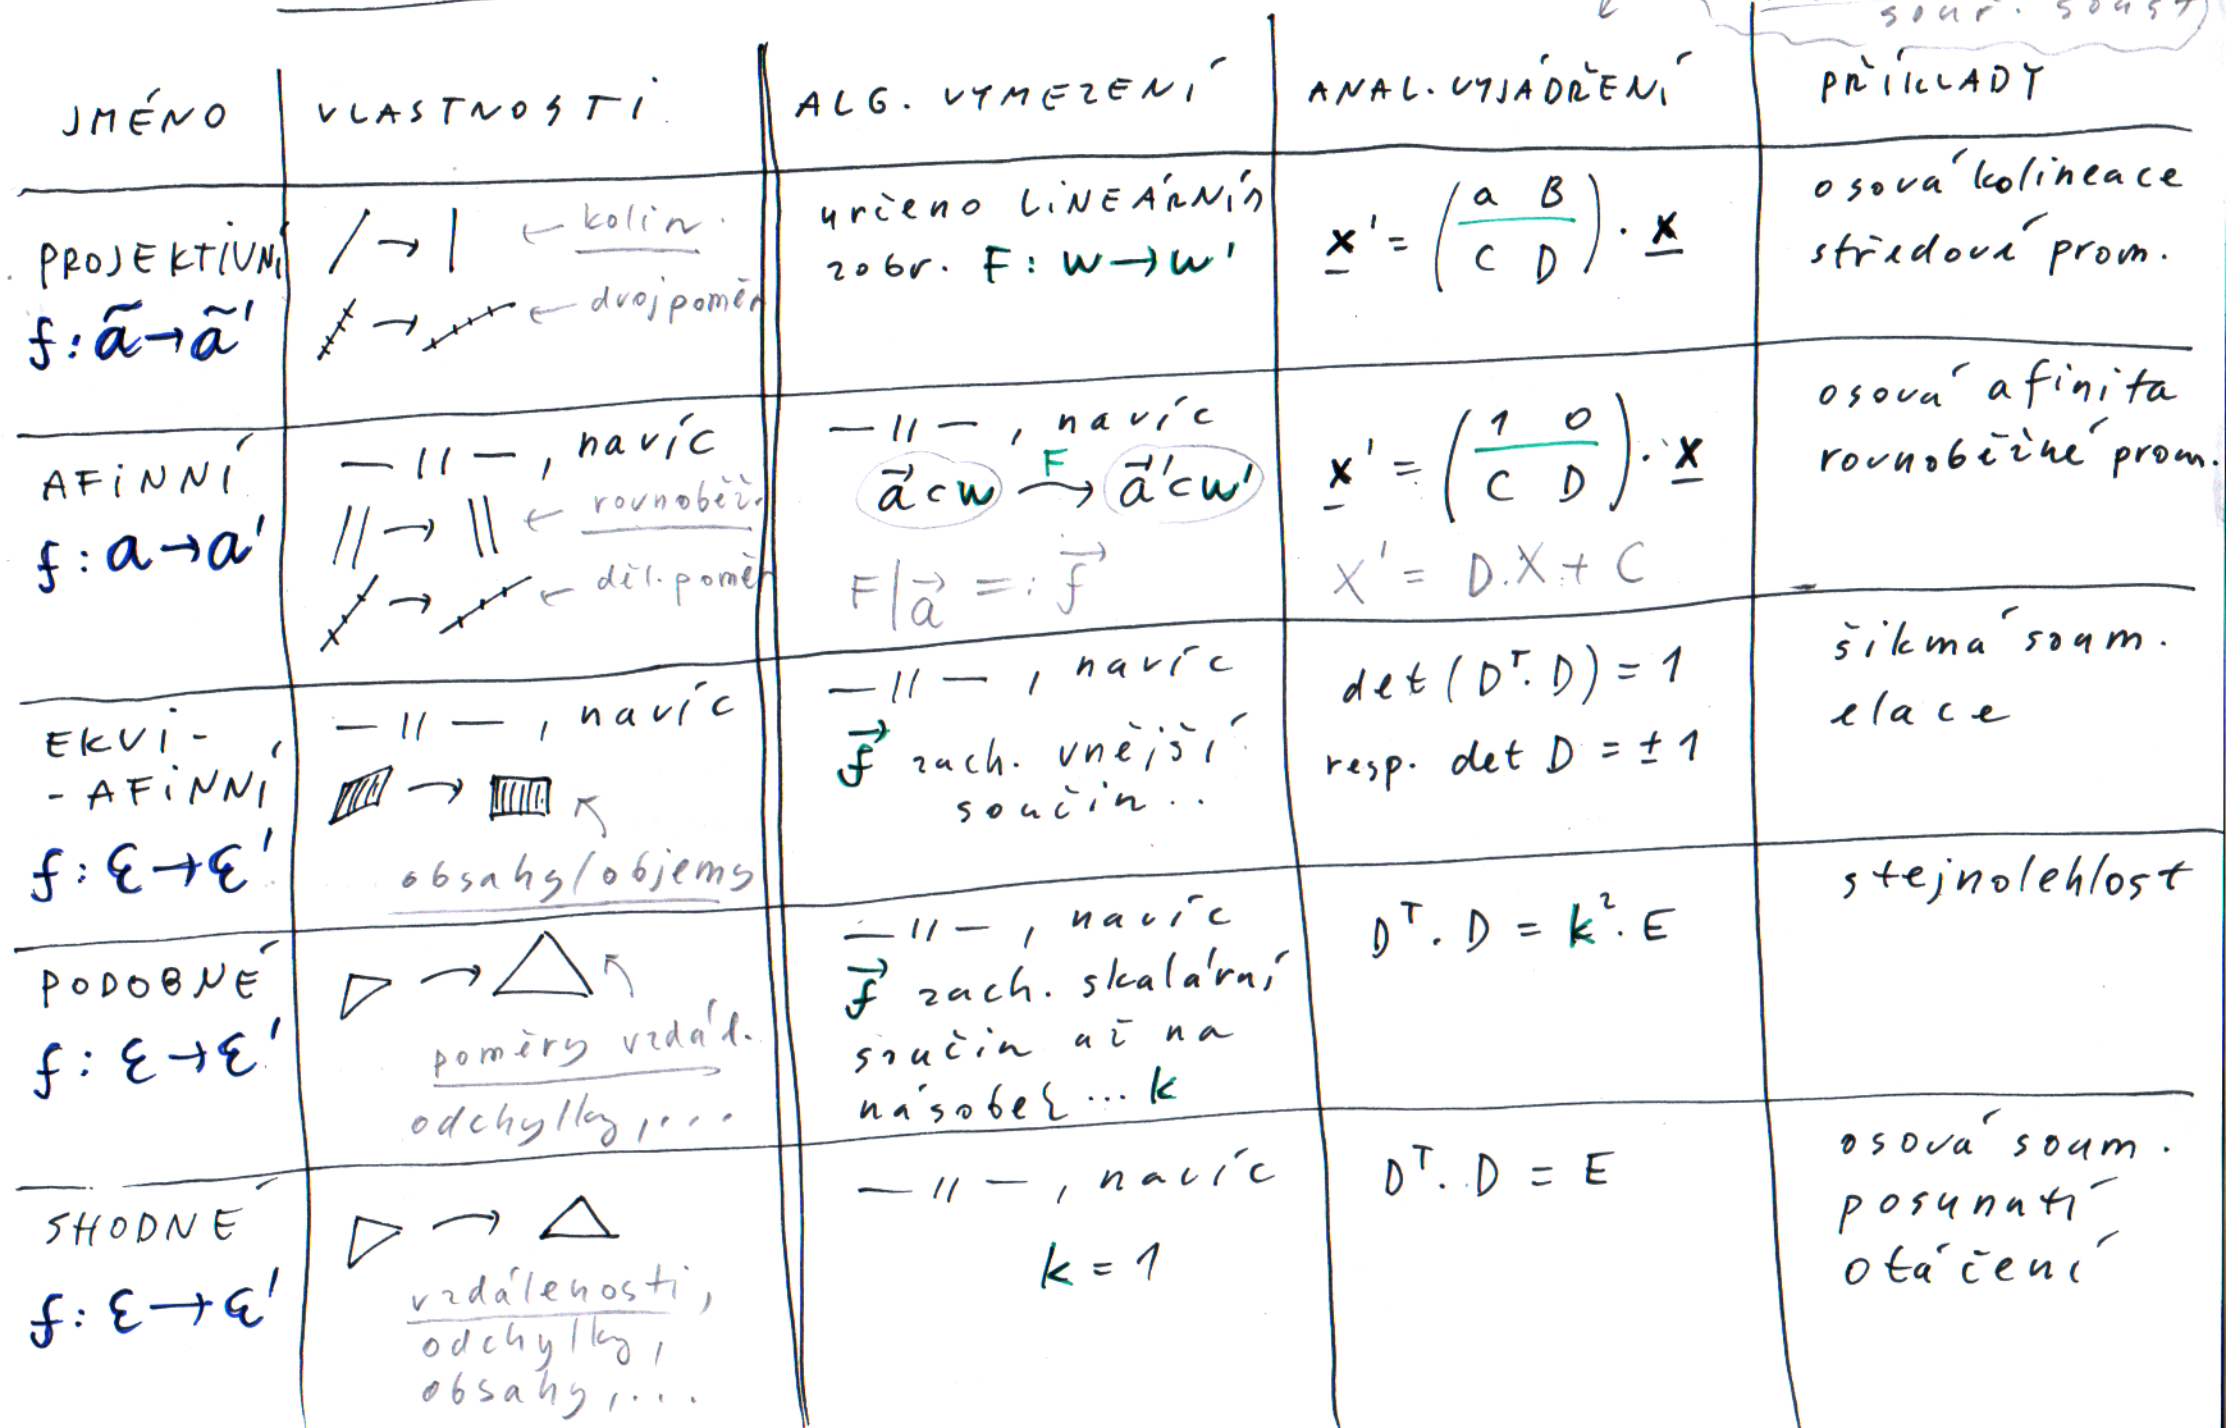 sour. soust
JMÉNO
VLASTNOSTI
ALG. VYMEZENÍ
ANAL. VYJÁDŘENÍ
PŘÍKLADY
PROJEKTIVNÍ
f: ã → ã'
← kolin.
← dvojpoměr
určeno LINEÁRNÍM
zobr. F: W → W'
x' = (a B / C D) · x
osová kolineace
středové prom.
AFINNÍ
f: a → a'
—||—, navíc
|| → || ← rovnoběž.
← děl. poměr
—||—, navíc
a⃗ ⊂ W →F a⃗' ⊂ W'
F|a⃗ =: f⃗
x' = (1 0 / C D) · x
X' = D.X + C
osová afinita
rovnoběžné prom.
EKVI-
-AFINNÍ
f: Ɛ → Ɛ'
—||—, navíc
obsahy/objemy
—||—, navíc
f⃗ zach. vnější
součin..
det(Dᵀ.D) = 1
resp. det D = ±1
šikmá soum.
elace
PODOBNÉ
f: Ɛ → Ɛ'
poměry vzdál.
odchylky,...
—||—, navíc
f⃗ zach. skalární
součin až na
násobek ... k
Dᵀ. D = k². E
stejnolehlost
SHODNÉ
f: Ɛ → Ɛ'
vzdálenosti,
odchylky,
obsahy,...
—||—, navíc
k = 1
Dᵀ. D = E
osová soum.
posunutí
otáčení